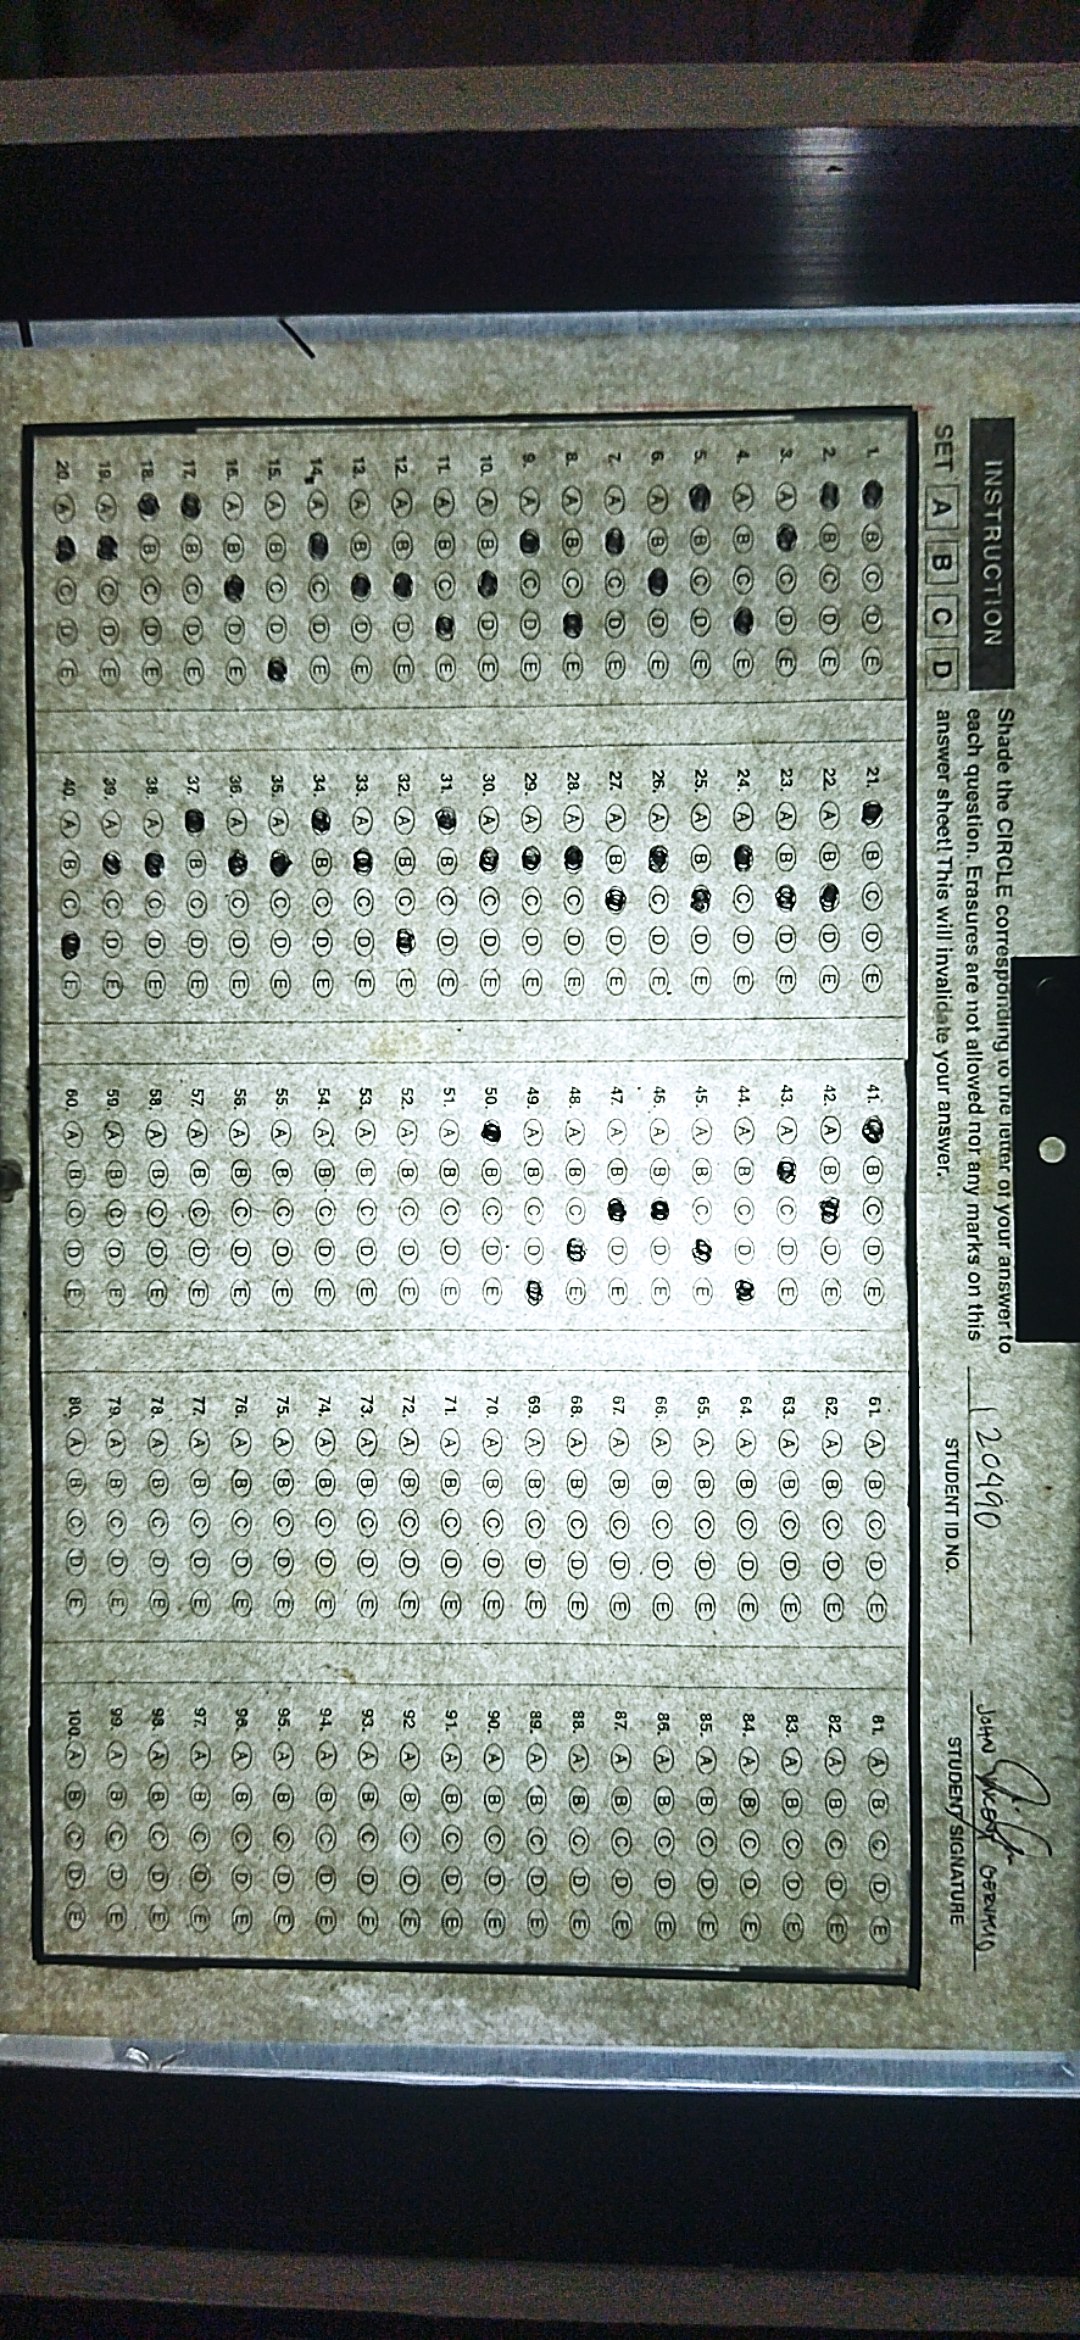 INSTRUCTION
Shade the CIRCLE corresponding to the letter of your answer to
each question. Erasures are not allowed nor any marks on this
answer sheet! This will invalidate your answer.
SET A B C D
120490
STUDENT ID NO.
JOHN VINCENT GERVACIO
STUDENT SIGNATURE
1. B C D E
2. B C D E
3. A C D E
4. A B C E
5. B C D E
6. A B D E
7. A C D E
8. A B C E
9. A C D E
10. A B D E
11. A B C E
12. A B D E
13. A B D E
14. A C D E
15. A B C D
16. A B D E
17. B C D E
18. B C D E
19. A C D E
20. A C D E
21. B C D E
22. A B D E
23. A B D E
24. A C D E
25. A B D E
26. A C D E
27. A B D E
28. A C D E
29. A C D E
30. A C D E
31. B C D E
32. A B C E
33. A C D E
34. B C D E
35. A C D E
36. A C D E
37. B C D E
38. A C D E
39. A C D E
40. A B C E
41. B C D E
42. A B D E
43. A C D E
44. A B C D
45. A B C E
46. A B D E
47. A B D E
48. A B C E
49. A B C D
50. B C D E
51. A B C D E
52. A B C D E
53. A B C D E
54. A B C D E
55. A B C D E
56. A B C D E
57. A B C D E
58. A B C D E
59. A B C D E
60. A B C D E
61. A B C D E
62. A B C D E
63. A B C D E
64. A B C D E
65. A B C D E
66. A B C D E
67. A B C D E
68. A B C D E
69. A B C D E
70. A B C D E
71. A B C D E
72. A B C D E
73. A B C D E
74. A B C D E
75. A B C D E
76. A B C D E
77. A B C D E
78. A B C D E
79. A B C D E
80. A B C D E
81. A B C D E
82. A B C D E
83. A B C D E
84. A B C D E
85. A B C D E
86. A B C D E
87. A B C D E
88. A B C D E
89. A B C D E
90. A B C D E
91. A B C D E
92 A B C D E
93. A B C D E
94. A B C D E
95. A B C D E
96. A B C D E
97. A B C D E
98. A B C D E
99. A B C D E
100. A B C D E